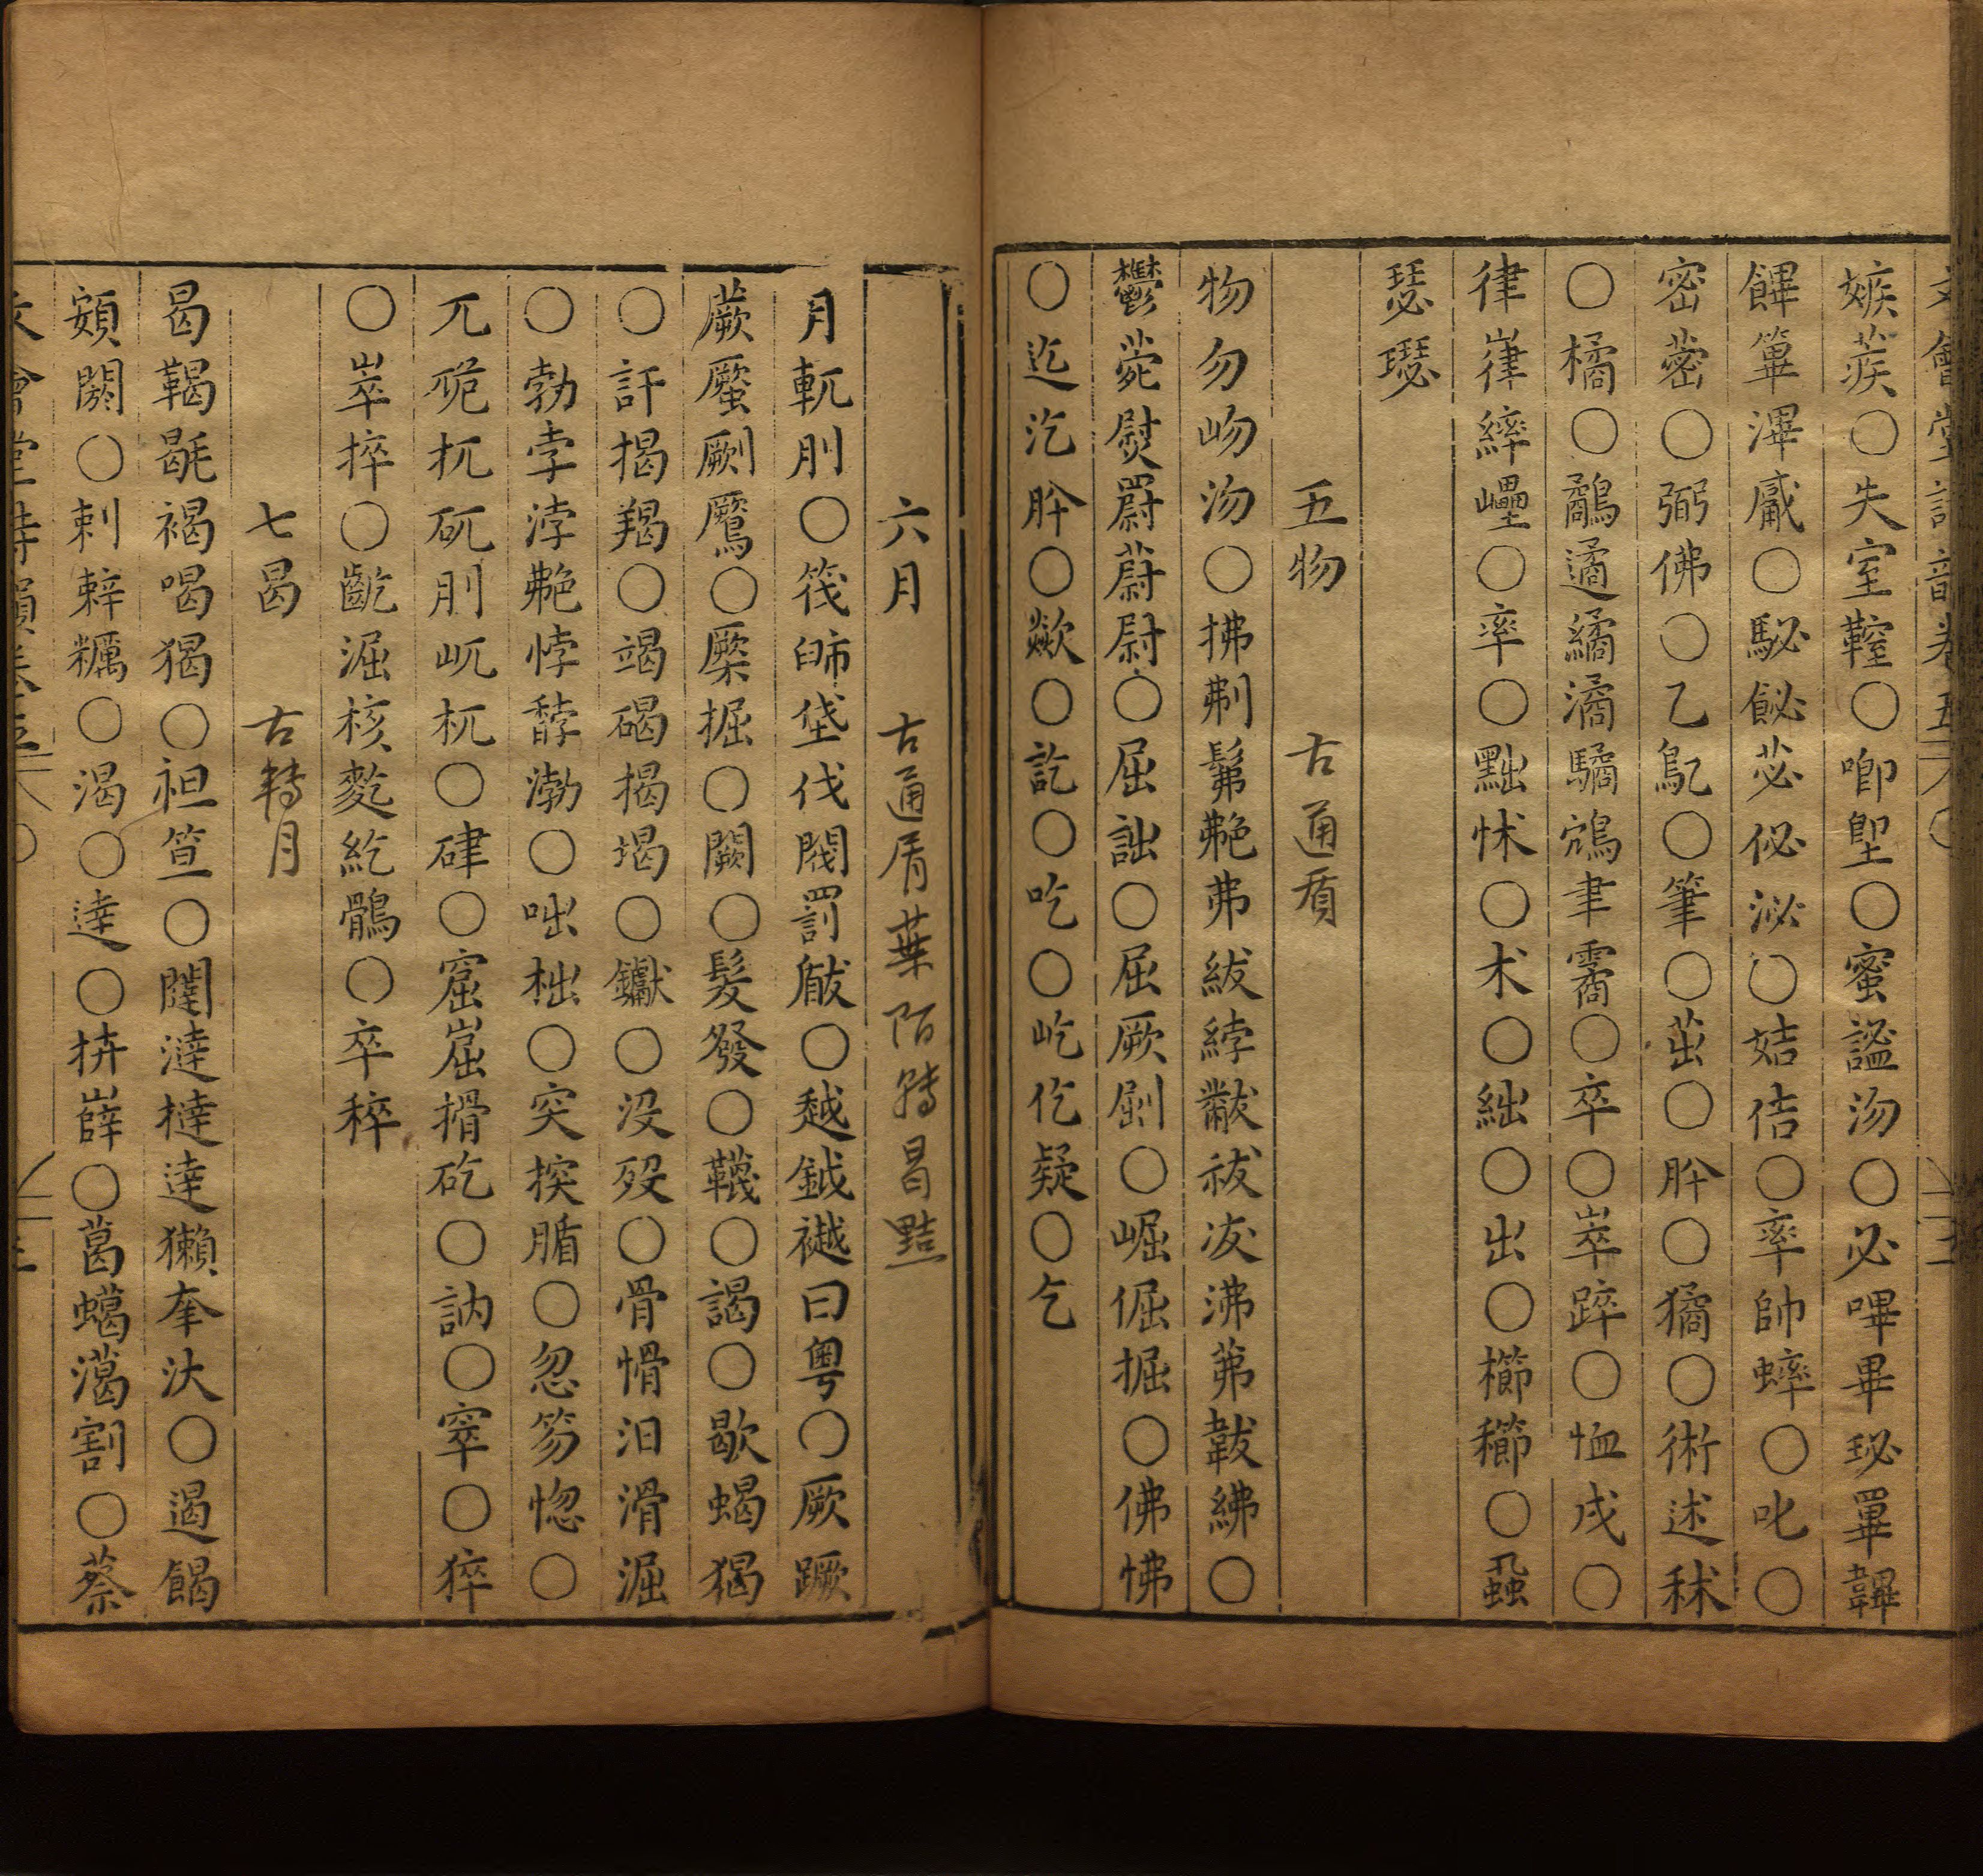 文會堂詩韻卷五
嫉蒺○失室䩗○喞堲○蜜謐沕○必嗶畢珌罼韠
饆篳滭○馝飶苾佖泌○姞佶○率帥蟀○叱○
密蔤○弼佛○乙鳦○筆○茁○肸○獝○術述秫
○橘○鷸遹繘潏驈鴥聿霱○卒○崒踤○恤戌○
律嵂繂○率○黜怵○朮○絀○出○櫛○蝨
瑟璱
五物 古通質
物勿岉沕○拂刜髴艴弗紱綍黻祓冹沸茀韍紼○
鬱菀熨罻蔚尉○屈詘○屈厥○崛倔掘○佛怫
○迄汔肸○歘○訖○吃○屹仡疑○乞
六月 古通屑葉陌轉曷黠
月軏刖○筏垡伐閥罰瞂○越鉞樾曰粤○厥蹶
蕨蟨劂鷢○橜掘○闕○髮發○韈○謁○歇蝎猲
○訐揭羯○竭碣揭堨○钀○没歿○骨愲汨滑淈
○勃孛浡艴悖馞渤○咄柮○突揬腯○忽笏惚○
兀卼扤矹刖屼杌○硉○窟崛搰矻○訥○窣○猝
○崒捽○齕淈核麧紇鶻○卒稡
七曷 古轉月
曷鞨毼褐喝猲○袒笪○闥澾撻達獺羍汏○遏餲
頞閼○剌辢糲○渴○達○㟧○葛轕濭割○蔡
文會堂詩韻卷五